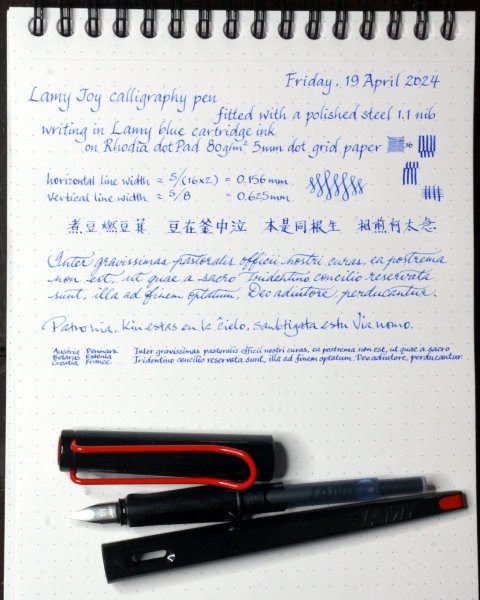 Friday, 19 April 2024
Lamy Joy calligraphy pen
fitted with a polished steel 1.1 nib
writing in Lamy blue cartridge ink
on Rhodia dotPad 80g/m² 5mm dot grid paper
16
horizontal line width ≈ 5/(16×2) = 0.156mm
vertical line width ≈ 5/8 = 0.625mm
煮豆燃豆萁 豆在釜中泣 本是同根生 相煎何太急
Inter gravissimas pastoralis officii nostri curas, ea postrema
non est, ut quae a sacro Tridentino concilio reservata
sunt, illa ad finem optatum, Deo adiutore, perducantur.
Patro nia, kiu estas en la ĉielo, sanktigata estu Via nomo.
Austria Denmark
Belarus Estonia
Croatia France
Inter gravissimas pastoralis officii nostri curas, ea postrema non est, ut quae a sacro
Tridentino concilio reservata sunt, illa ad finem optatum, Deo adiutore, perducantur.
LAMY